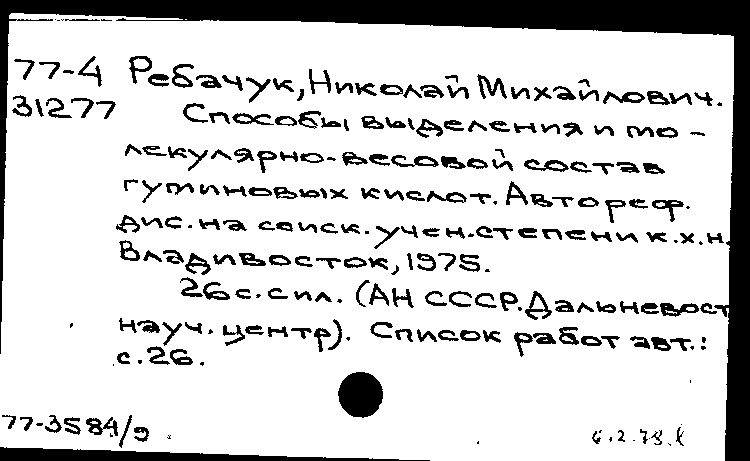 77-4 Ребачук, Николай Михайлович.
31277 Способы выделения и мо-
лекулярно-весовой состав
гуминовых кислот. Автореф.
дис. на соиск. учен. степени к.х.н.
Владивосток, 1975.
26 с. с ил. (АН СССР. Дальневост
науч. центр). Список работ авт.:
с. 26.
77-3584/э
6.2.78.